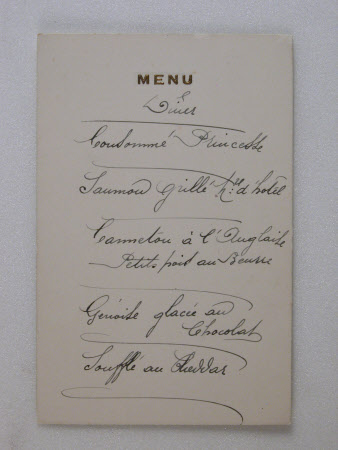 MENU
Dîner
Consommé Princesse
Saumon Grillé M.tre d'hotel
Canneton à l'Anglaise
Petits pois au Beurre
Génoise glacée au
Chocolat
Soufflé au Cheddar